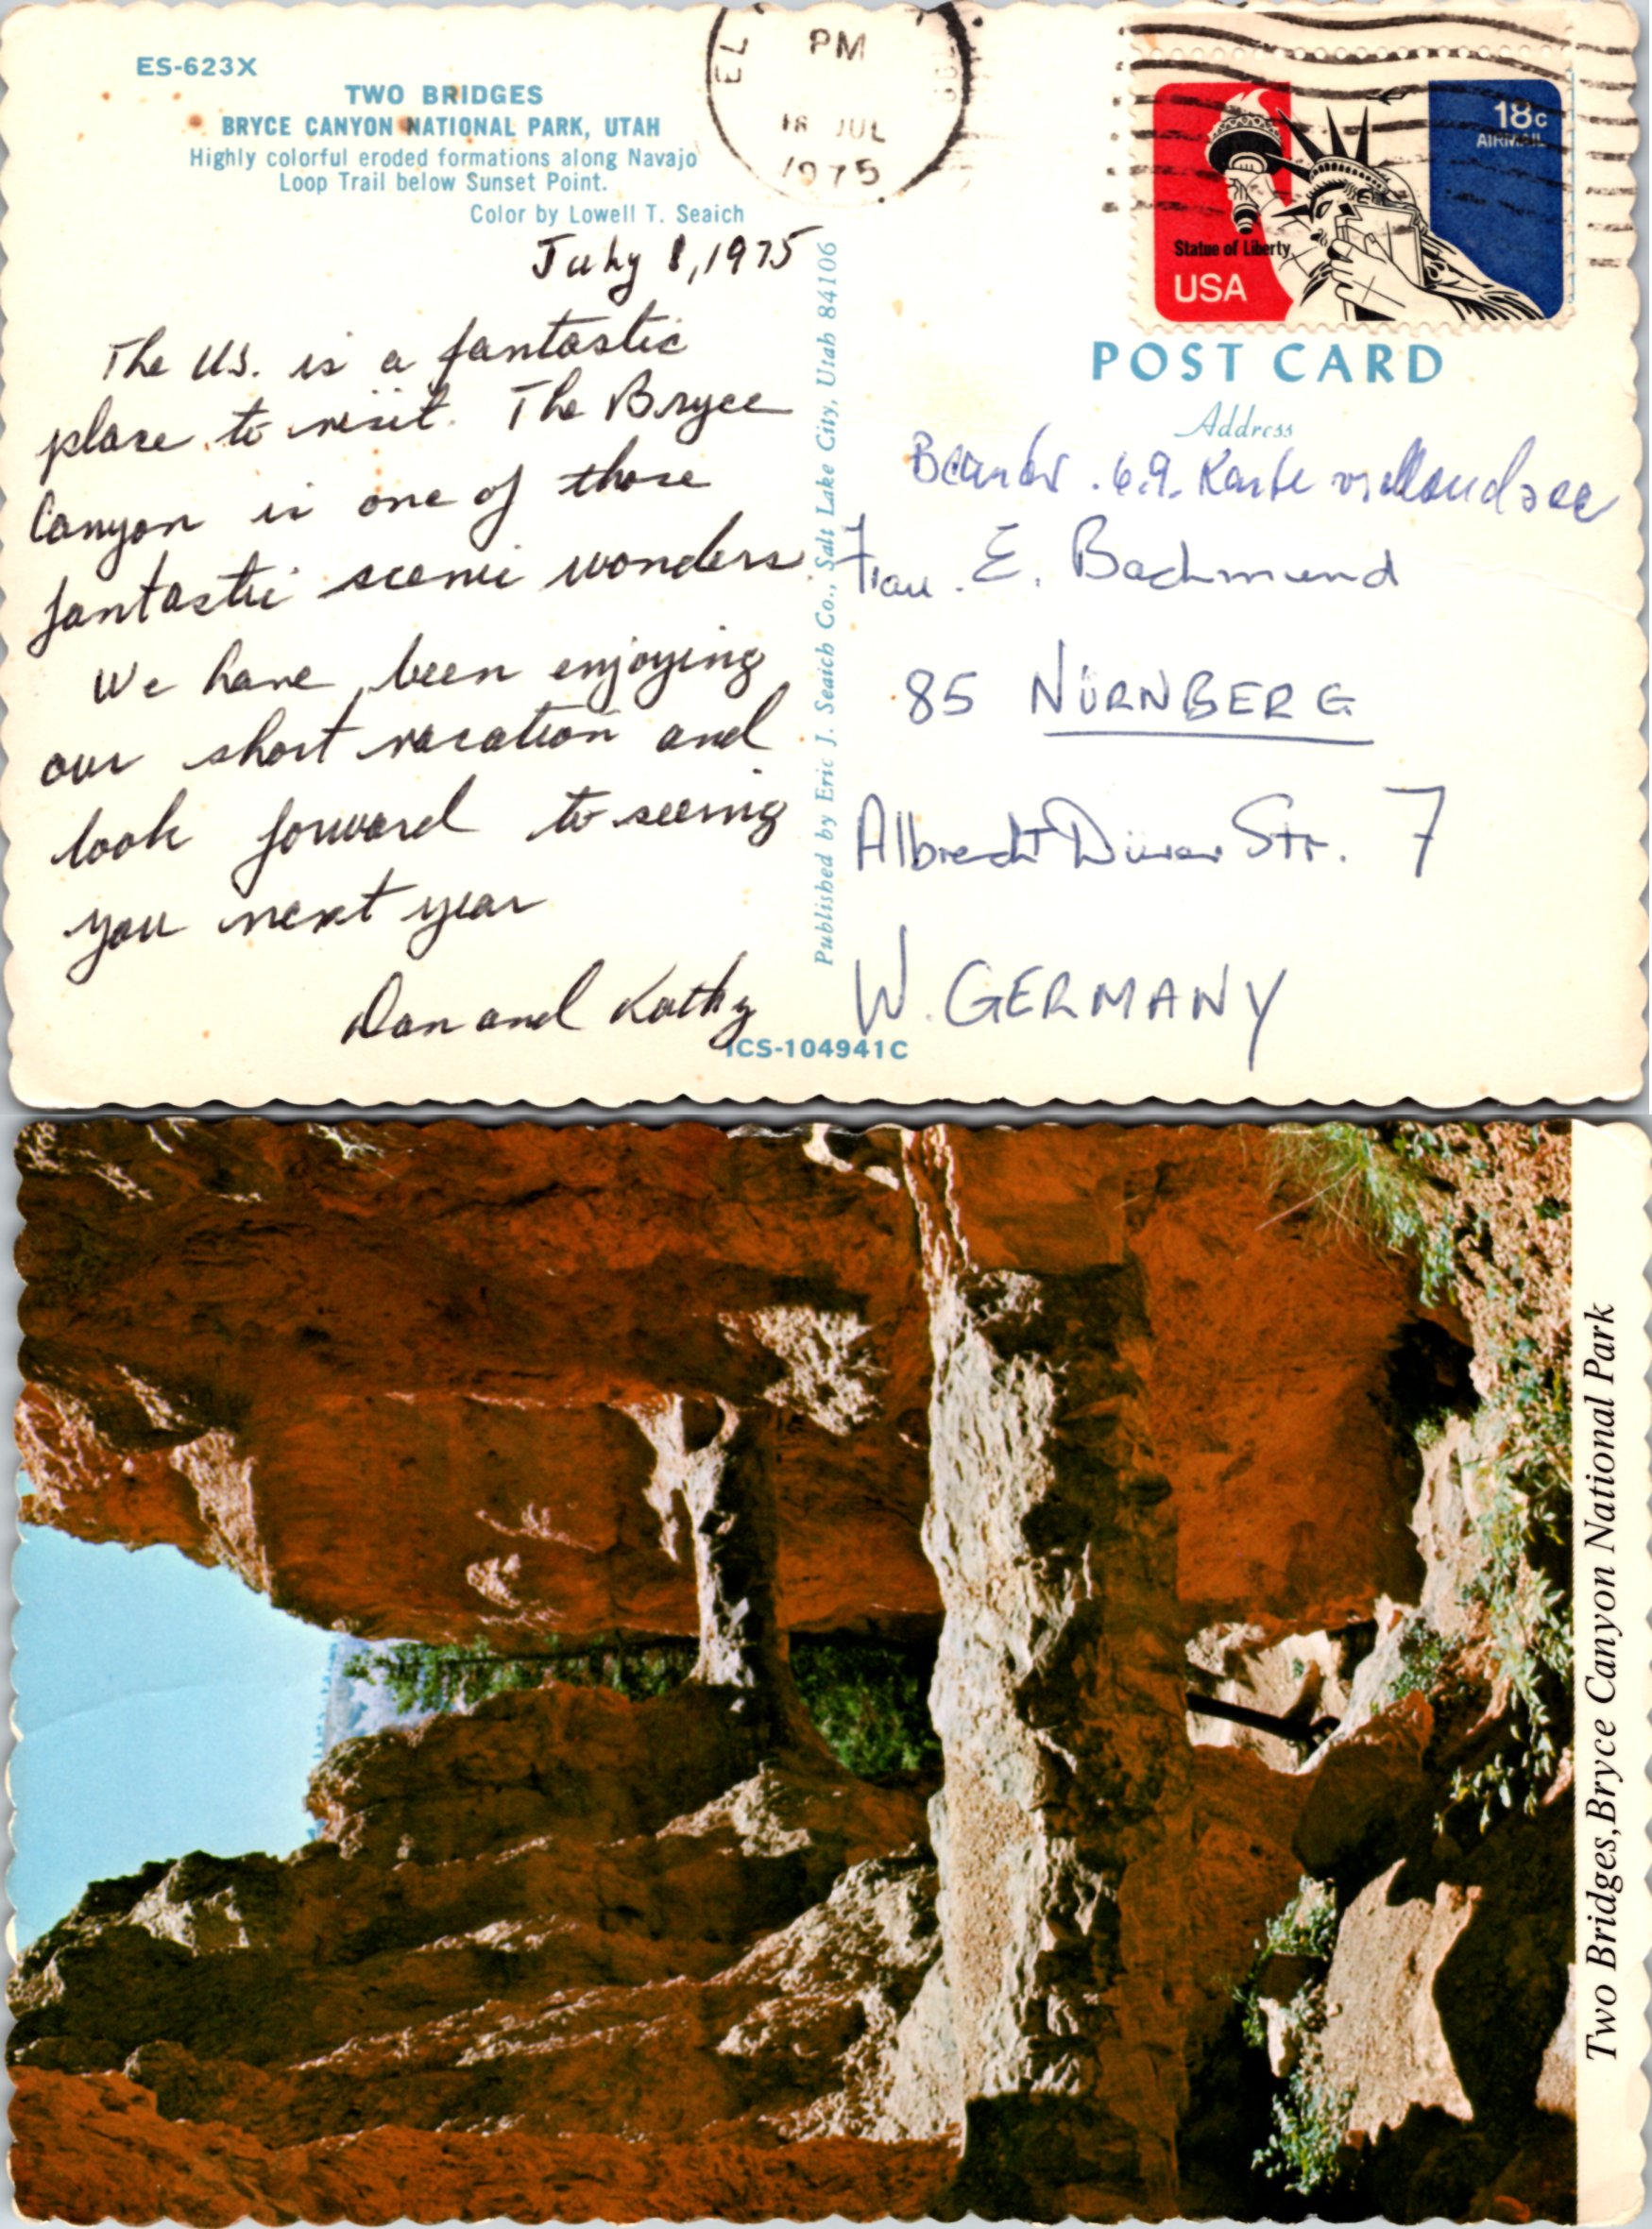 ES-623X
TWO BRIDGES
BRYCE CANYON NATIONAL PARK, UTAH
Highly colorful eroded formations along Navajo
Loop Trail below Sunset Point.
Color by Lowell T. Seaich
July 8, 1975
The U.S. is a fantastic
place to visit. The Bryce
Canyon is one of those
fantastic scenic wonders.
We have been enjoying
our short vacation and
look forward to seeing
you next year
Dan and Kathy
ICS-104941C
Published by Eric J. Seaich Co., Salt Lake City, Utah 84106
EL
PM
18 JUL
1975
18c
AIRMAIL
Statue of Liberty
USA
POST CARD
Address
6.9. Karte
Frau. E. Bachmund
85 NÜRNBERG
Albrecht Dürer Str. 7
W. GERMANY
Two Bridges, Bryce Canyon National Park